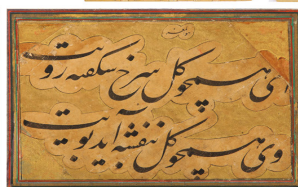 ای همچو گل سرخ شکفته رویت
وی همچو گل بنفشه آید بویت